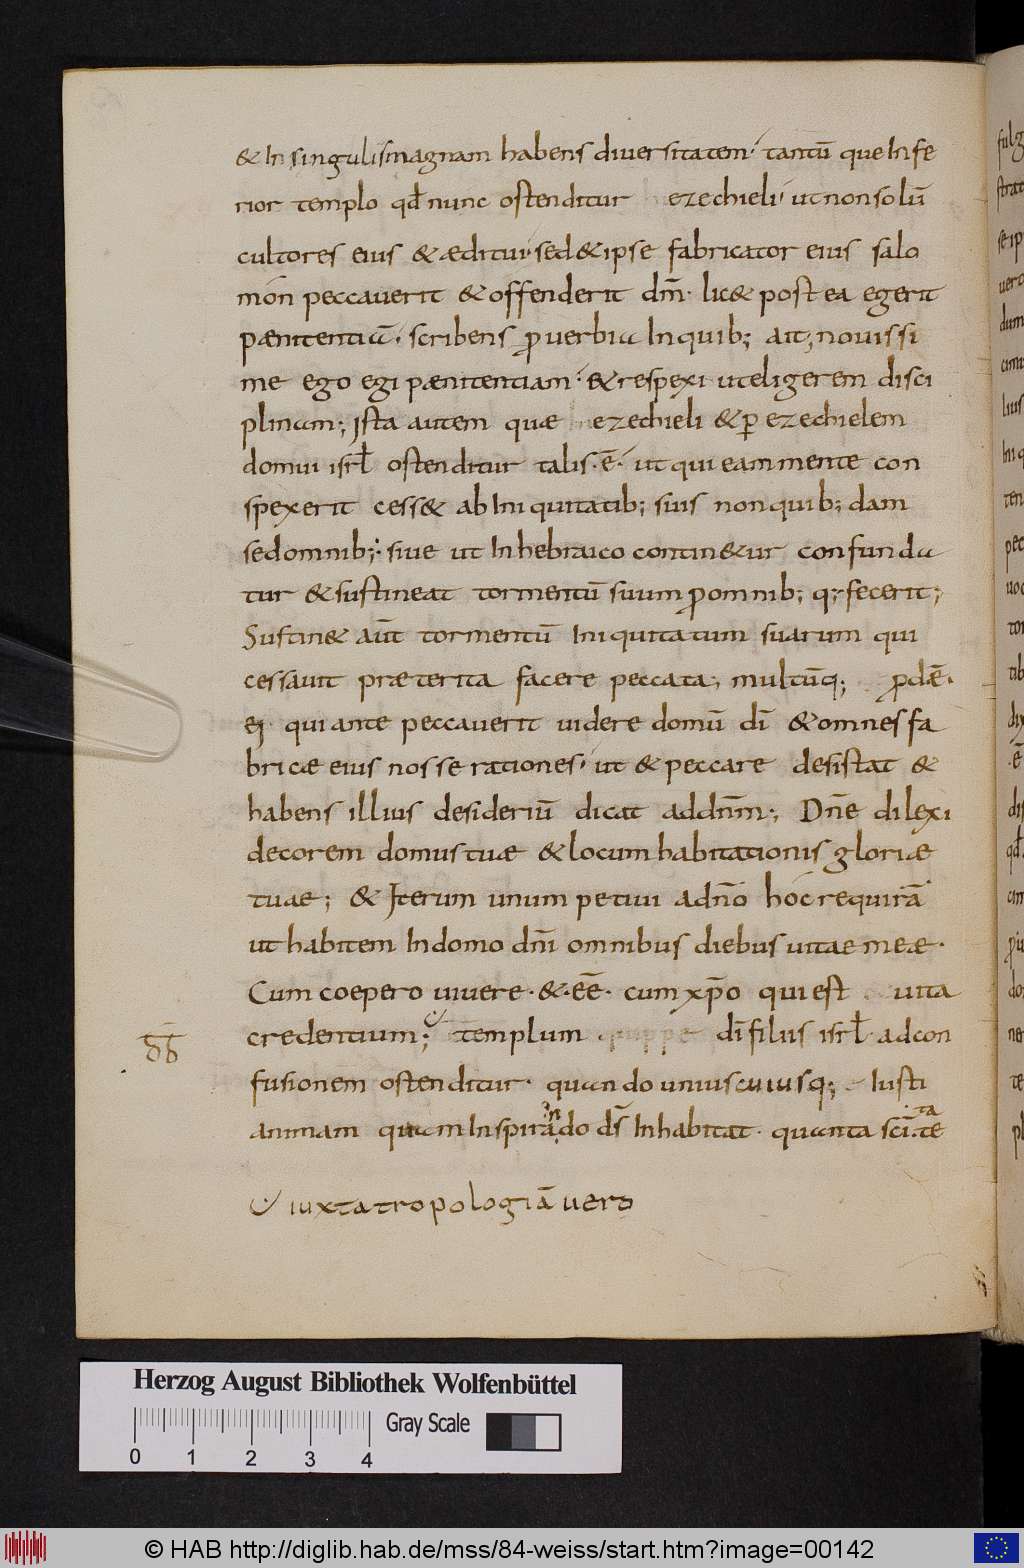 & In singulis magnam habens diuersitatem· tantū que Infe
rior templo qđ nunc ostenditur ezechieli· ut non solū
cultores eius & æditui· sed & ipse fabricator eius salo
mon peccauerit & offenderit dm̄· lic& postea egerit
pænitentiā· scribens ꝓuerbia In quib; ait; nouissi
me ego egi pænitentiam· & respexi ut eligerem disci
plinam; Ista autem quæ ezechieli & ꝑ ezechielem
domui isrł ostenditur talis·ē· ut qui eam mente con
spexerit cess& ab Iniquitatib; suis non quib;dam
sed omnib;· siue ut In hebraico contin&ur confunda
tur & sustineat tormentū suum ꝓ omnib; q; fecerit;
Sustin& aūt tormentū Iniquitatum suarum qui
cessauit præterita facere peccata; multūq; ꝓdē·
ei qui ante peccauerit uidere domū dī & omnes fa
bricæ eius nosse rationes· ut & peccare desistat &
habens illius desideriū dicat ad dnm̄; Dn̄e dilexi
decorem domus tuæ & locum habitationis gloriæ
tuae; & Iterum unum petiui a dn̄o hoc requirā
ut habitem In domo dnī omnibus diebus uitae meæ·
Cum coepero uiuere·&·ēē· cum xp̄o qui est uita
credentium; templum quippe dī filiis isrł ad con
fusionem ostenditur· quando uniuscuiusq; Iusti
animam quam Inspirando ds̄ Inhabitat· quanta sci·ta·te
iuxta tropologiā uero
Herzog August Bibliothek Wolfenbüttel
Gray Scale
0 1 2 3 4
© HAB http://diglib.hab.de/mss/84-weiss/start.htm?image=00142